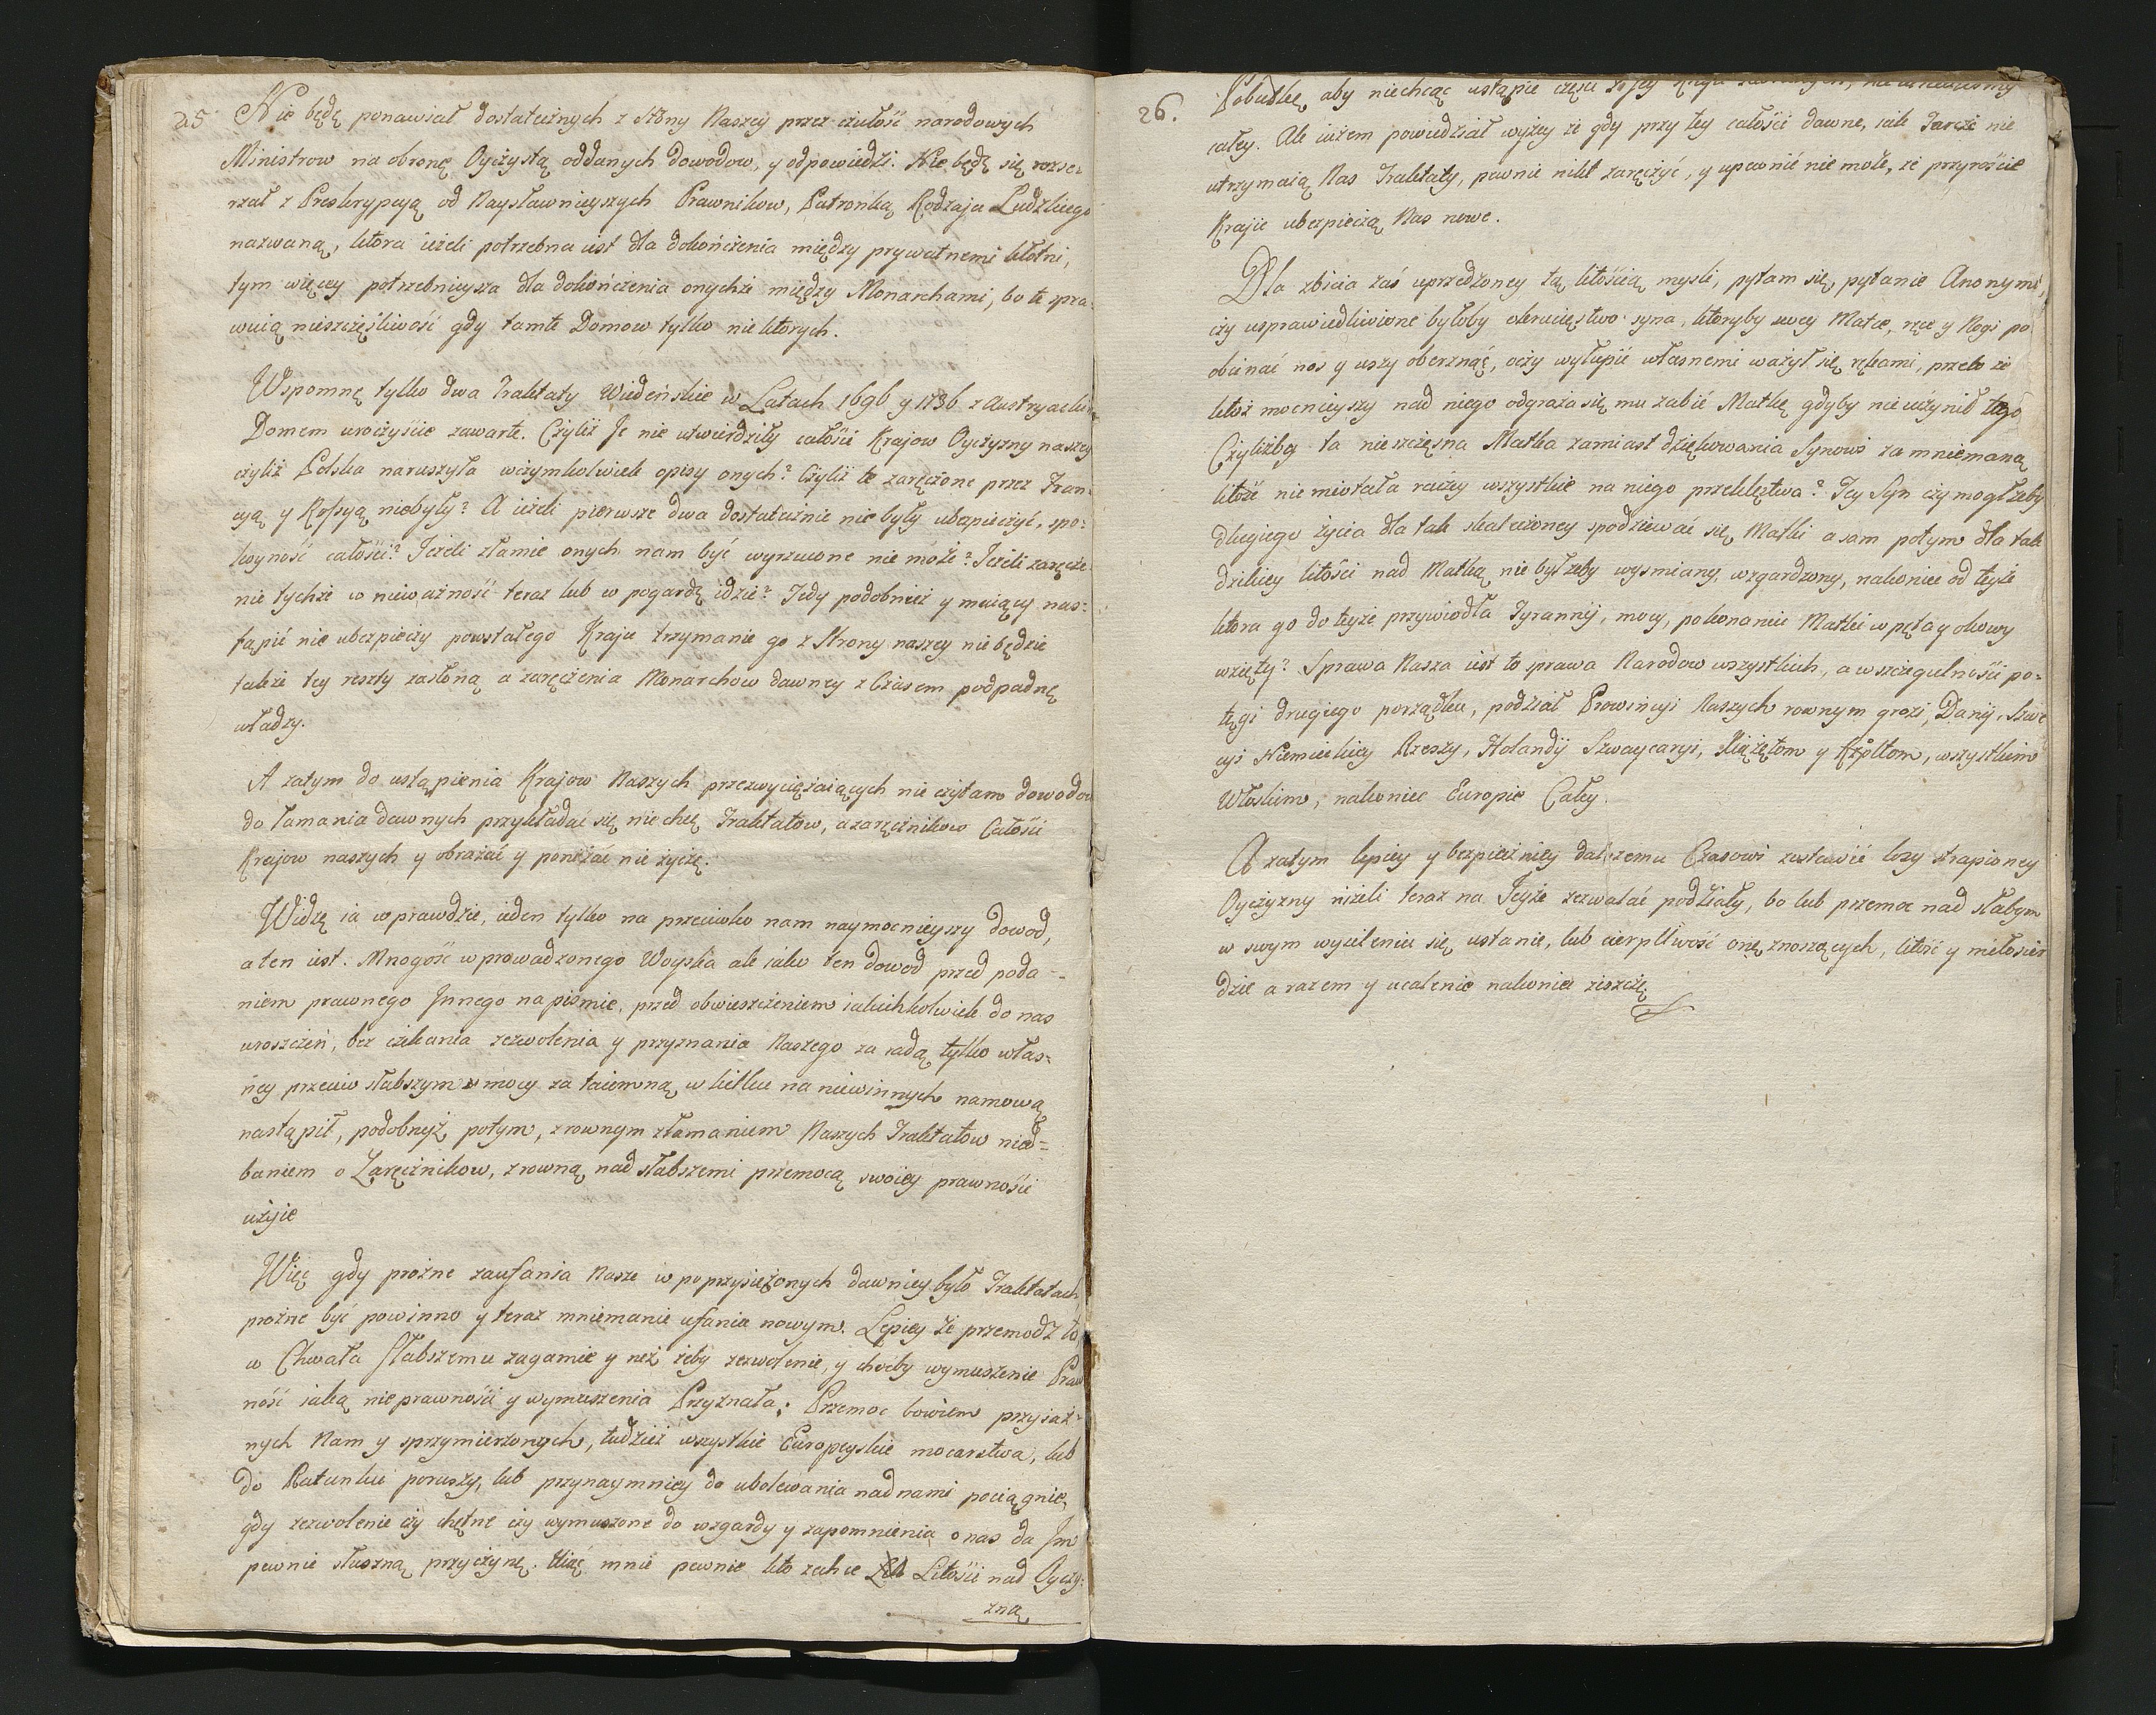 25. Nie będę ponawiał dostatecznych z Strony Naszey przez czułość narodowych
Ministrow na obronę Oyczystą oddanych dowodow, y odpowiedzi. Nie będę się rosze-
rzał z Preskrypcyą od Naysławnieyszych Prawnikow, Patronką Rodzaju Ludzkiego
nazwaną, ktora ieżeli potrzebna iest dla dokończenia między prywatnemi kłotni,
tym więcey potrzebnieysza dla dokończenia onychże między Monarchami, bo te spra-
wuią nieszczęśliwość gdy tamte Domow tylko niektorych.
Wspomnę tylko dwa Traktaty Wiedeńskie w Latach 1696 y 1736 z Austryackim
Domem uroczyście zawarte. Czyliż Je nie utwierdziły całości Krajow Oyczyzny naszey
czyliż Polska naruszyła wczymkolwiek opisy onych? Czyliż te zaręczone przez Fran-
cyą y Rossyą niebyły? A ieżeli pierwsze dwa dostatecznie nie były ubezpieczyć, spo-
koyność całości? Jeżeli złamie onych nam być wyrzucone nie może? Jeżeli zaręcze-
nie tychże w nieważność teraz lub w pogardę idzie? Tedy podobnież y maiący nas-
tąpić nie ubezpieczy powstałego Kraju trzymanie go z Strony naszey nie będzie
także tey reszty zasłoną a zaręczenia Monarchow dawney z Czasem podpadnę
władzy.
A zatym do ustąpienia Krajow Naszych przezwyciężaiących nie czytam dowodow
do łamania dawnych przykładać się nie chcę Traktatow, a zaręcznikow Całości
Krajow naszych y obrażać y poniżać nie życzę.
Widzę ia wprawdzie, ieden tylko na przeciwko nam naymocnieyszy dowod,
a ten iest. Mnogość wprowadzonego Woyska ale iako ten dowod przed poda-
niem prawnego Innego na piśmie, przed obwieszczeniem iakichkolwiek do nas
uroszczeń, bez czekania zezwolenia y przyznania Naszego za radą tylko włas-
ney przeciw słabszym mocy za taiemną w kilku na niewinnych namową
nastąpił, podobnyż potym, z rownym złamaniem Naszych Traktatow nied-
baniem o Zaręcznikow, z rowną nad słabszemi przemocą swoiey prawności
użyie
Więc gdy prożne zaufania Nasze w poprzysiężonych dawniey było Traktatach
prożne być powinno y teraz mniemanie ufania nowym. Lepiey że przemodz to
w Chwała słabszemu zagamie y neż żeby zezwolenie, y choćby wymuszenie Praw
ność iaką nieprawności y wymuszenia Przyznała; Przemoc bowiem przyiaź-
nych Nam y sprzymierzonych, tudzież wszystkie Europeyskie mocarstwa, lub
do Ratunku poruszy, lub przynaymniey do ubolewania nad nami pociągnie,
gdy zezwolenie czy chętne czy wymuszone do wzgardy y zapomnienia o nas da Jm
pewnie słuszną przyczynę. Uiąć mnie pewnie kto zechce Litości nad Oyczy-
zną
26. Pobudkę, aby niechcąc ustąpić części
całey. Ale iużem powiedział wyżey że gdy przy tey całości dawne, iak Tarcze nie
utrzymaią Nas Traktaty, pewnie nikt zaręczyć, y upewnić nie może, że przyrościć
Kraje ubezpieczą Nas nowe.
Dla zbicia zaś uprzedzoney tą litością mysli, pytam się, pytanie Anonyma,
czy usprawiedliwione byłoby okrucięstwo syna, ktoryby swey Matce, ręce y Nogi po
obcinać nos y uszy oberznąć, oczy wyłupić własnemi ważył się rękami, przeto że
ktoż mocnieyszy nad niego odgraża się mu zabić Matkę gdyby nie uczynił tego
Czyliżby ta nieszczęsna Matka zamiast dziękowania Synowi za mniemaną
litość nie miotała raczey wszystkie na niego przeklęstwa? Jey Syn czy mogł żeby
długiego życia dla tak skaleczoney spodziewać się Matki a sam potym dla tak
dzikiey litości nad Matką nie był żeby wysmiany, wzgardzony, nakoniec od teyże
ktora go do teyże przywiodła Tyrannij, mocy, pokonaniu Matki w pęta y okowy
wzięty? Sprawa Nasza iest to sprawa Narodow wszystkich, a w szczegulności po-
tęgi drugiego porządku, podział Prowincyi Naszych rownym grozi, Danij, Szwe
cyi Niemieckiey Rzeszy, Holandij Szwaycaryi, Xiążętom y Rzpltom, wszystkim
Włoskim, nakoniec Europie Całey.
A zatym lepiey y bezpieczniey dalszemu Czasowi zostawić losy strapioney
Oyczyzny niżeli teraz na Jeyże zezwalać podziały, bo lub przemoc nad słabym
w swym wycileniu się ustanie, lub cierpliwość onę znoszących, litość y miłosier
dzie a razem y ucalenie nakoniec ziszczę.